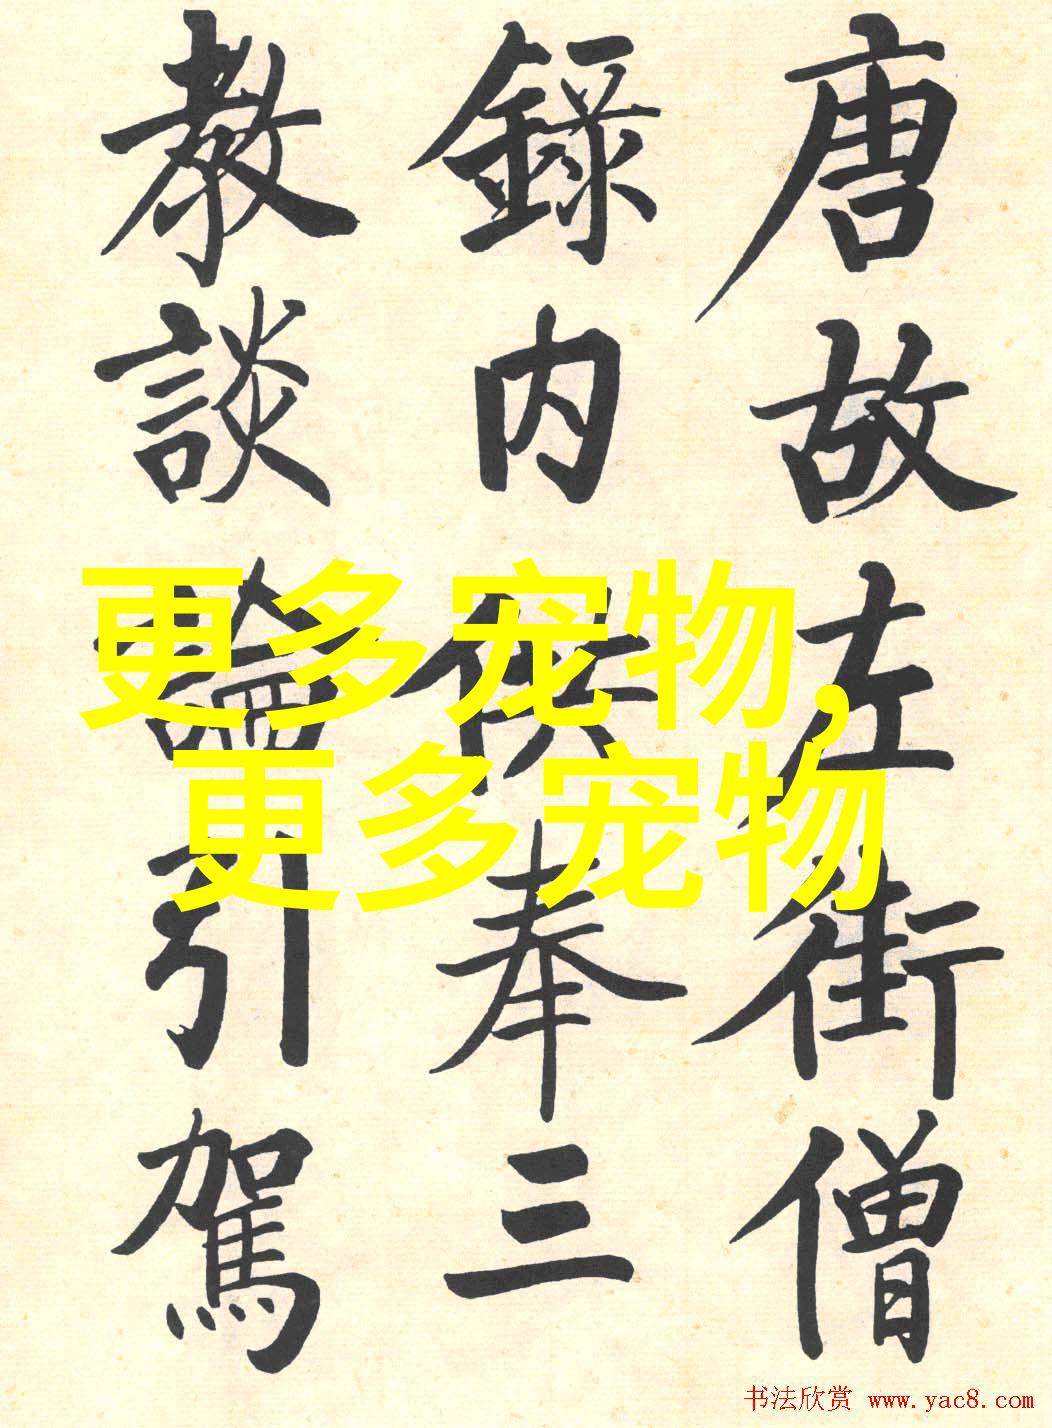 唐故左街僧
錄内供奉三
教談論引駕
更多宠物,
更多宠物
书法欣赏 www.yac8.com